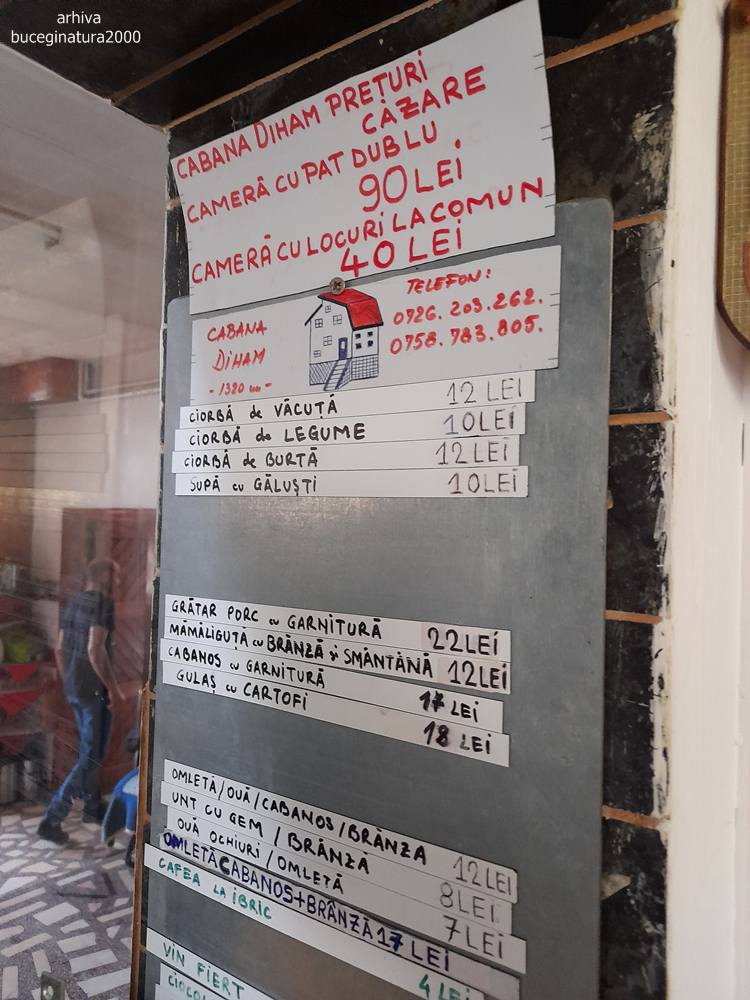 arhiva
buceginatura2000
CABANA DIHAM PREȚURI
CAZARE
CAMERĂ CU PAT DUBLU
90 LEI
CAMERĂ CU LOCURI LA COMUN
40 LEI
CABANA
DIHAM
- 1320 m -
TELEFON:
0726. 203. 262.
0758. 783. 805.
CIORBĂ de VĂCUȚĂ 12 LEI
CIORBĂ de LEGUME 10 LEI
CIORBĂ de BURTĂ 12 LEI
SUPĂ cu GĂLUȘTI 10 LEI
GRĂTAR PORC cu GARNITURĂ 22 LEI
MĂMĂLIGUȚĂ cu BRÂNZĂ și SMÂNTÂNĂ 12 LEI
CABANOS cu GARNITURĂ 17 LEI
GULAȘ cu CARTOFI 18 LEI
OMLETĂ/OUĂ/CABANOS/BRÂNZA 12 LEI
UNT CU GEM / BRÂNZĂ 8 LEI
OUĂ OCHIURI / OMLETĂ 7 LEI
OMLETĂ CABANOS+BRÂNZĂ 17 LEI
CAFEA LA IBRIC 4 LEI
VIN FIERT